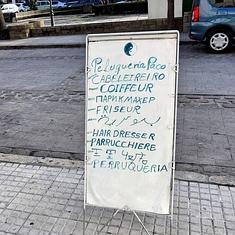 Peluqueria Paco
CABELEIREIRO
- COIFFEUR
- ПАРИКМАХЕР
- FRISEUR
HAIR DRESSER
PARRUCCHIERE
PERRUQUERIA